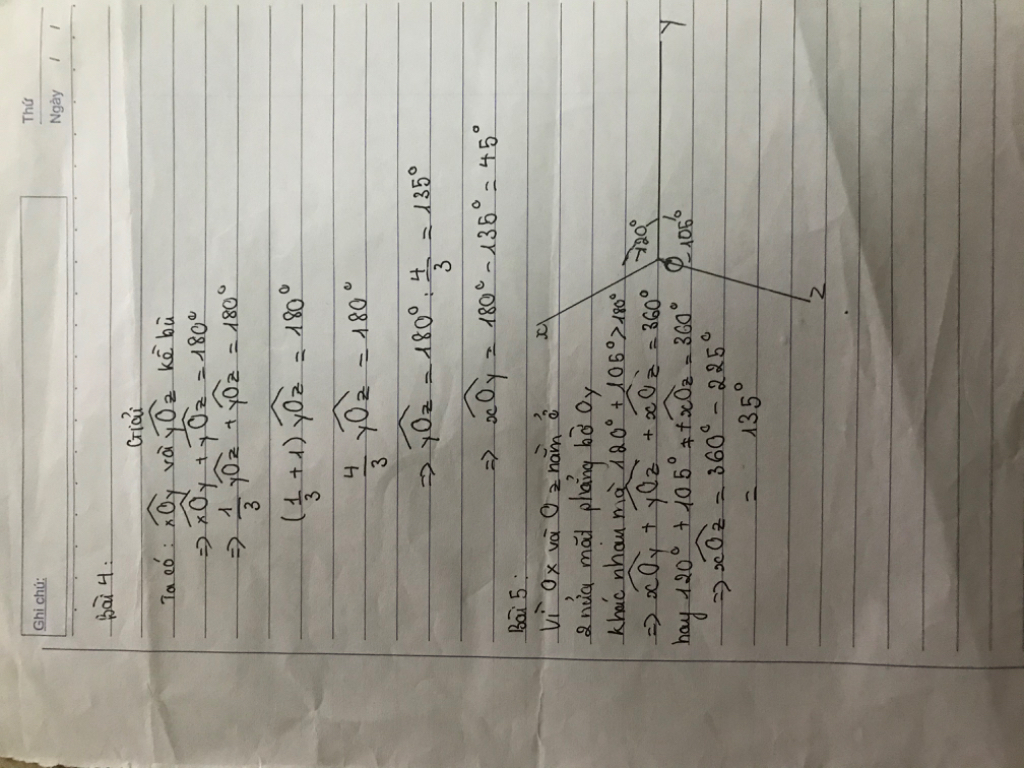 Ghi chú:
Thứ
Ngày / /
Bài 4:
Giải
Ta có: xOy và yOz kề bù
=> xOy + yOz = 180°
=> 1/3 yOz + yOz = 180°
(1/3 + 1) yOz = 180°
4/3 yOz = 180°
=> yOz = 180° : 4/3 = 135°
=> xOy = 180° - 135° = 45°
Bài 5:
Vì Ox và Oz nằm ở
2 nửa mặt phẳng bờ Oy
khác nhau mà 120° + 105° > 180°
=> xOy + yOz + xOz = 360°
hay 120° + 105° + xOz = 360°
=> xOz = 360° - 225°
= 135°
x
120°
y
O
105°
z